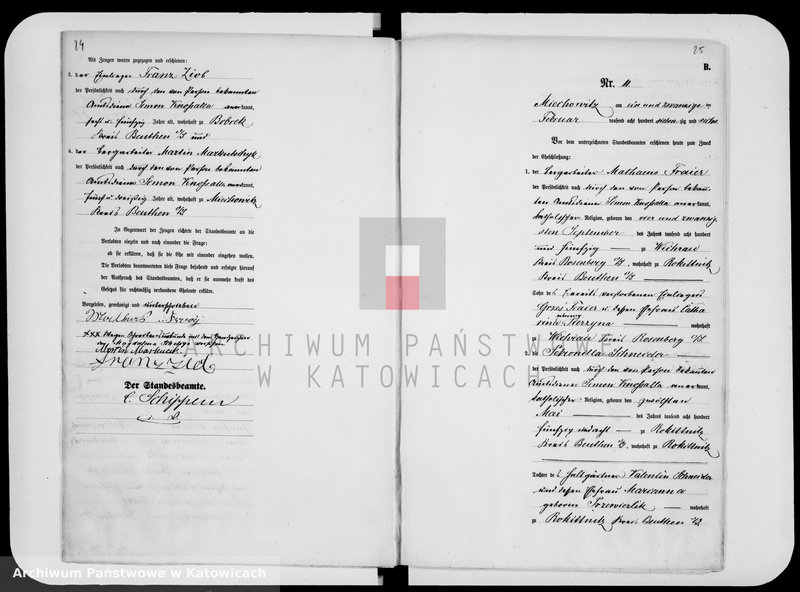 24
Als Zeugen waren zugezogen und erschienen:
3. der Einlieger Franz Ziob
der Persönlichkeit nach durch den von Person bekannten
Amtsdiener Simon Knossalla anerkannt,
sechs u. fünfzig Jahre alt, wohnhaft zu Bobrek
Kreis Beuthen O/S und
4. der Bergarbeiter Martin Markutschyk
der Persönlichkeit nach durch den von Person bekannten
Amtsdiener Simon Knossalla anerkannt,
fünf u. dreißig Jahre alt, wohnhaft zu Miechowitz
Kreis Beuthen O/S
In Gegenwart der Zeugen richtete der Standesbeamte an die
Verlobten einzeln und nach einander die Frage:
ob sie erklären, daß sie die Ehe mit einander eingehen wollen.
Die Verlobten beantworteten diese Frage bejahend und erfolgte hierauf
der Ausspruch des Standesbeamten, daß er sie nunmehr kraft des
Gesetzes für rechtmäßig verbundene Eheleute erkläre.
Vorgelesen, genehmigt und unterschrieben
XXX wegen
Franz Ziob
Der Standesbeamte.
25
B.
Nr. 11
Miechowitz am ein und zwanzigsten
Februar tausend acht hundert siebenzig und
Vor dem unterzeichneten Standesbeamten erschienen heute zum Zweck
der Eheschließung:
1. der Bergarbeiter Mathaeus Fraier
der Persönlichkeit nach durch den von Person bekann-
ten Amtsdiener Simon Knossalla anerkannt,
katholischer Religion, geboren den vier und zwanzig-
sten September des Jahres tausend acht hundert
und fünfzig zu
Kreis Rosenberg O/S, wohnhaft zu Rokittnitz
Kreis Beuthen O/S
Sohn des bereits verstorbenen Einliegers
Fraier u. dessen Ehefrau Catha
rina geborene wohnhaft
Kreis Rosenberg O/S
2. die Schneider
der Persönlichkeit nach durch den von Person bekannten
Amtsdiener Simon Knossalla anerkannt,
katholischer Religion, geboren den zwölften
Mai des Jahres tausend acht hundert
fünfzig und acht zu Rokittnitz
Kreis Beuthen O/S, wohnhaft zu Rokittnitz
Tochter des Halbgärtner Valentin Schneider
und dessen Ehefrau Marianna
geborene wohnhaft
zu Rokittnitz Kreis Beuthen O/S
ARCHIWUM PAŃSTWOWE
W KATOWICACH
Archiwum Państwowe w Katowicach